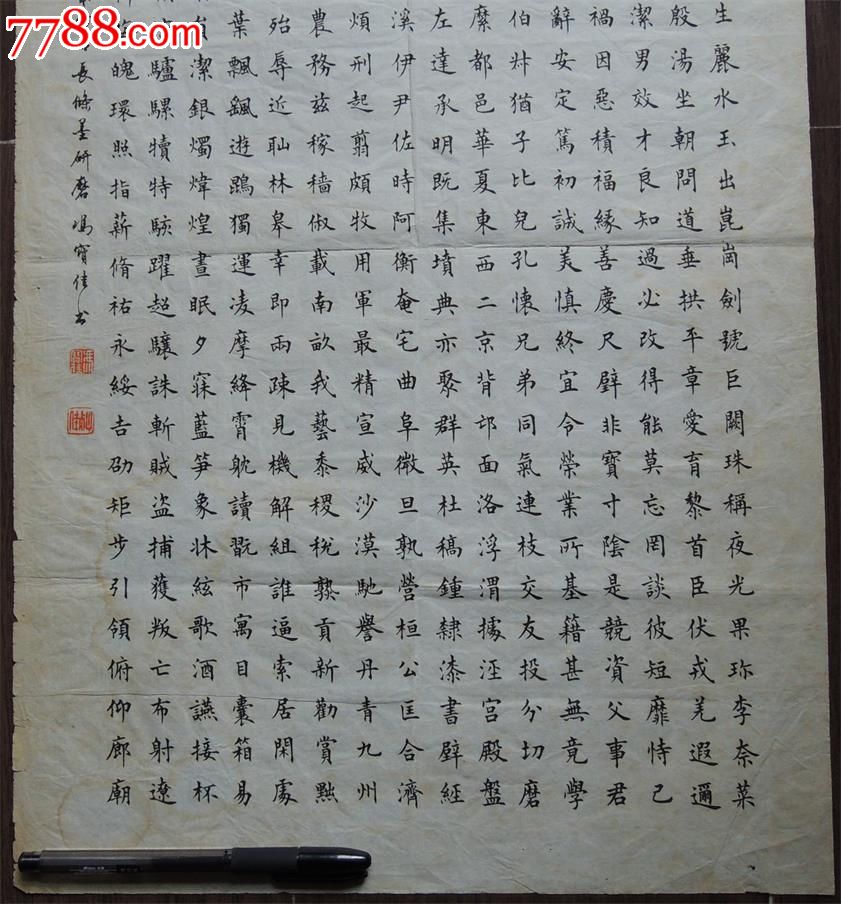 7788.com
生麗水玉出崑崗劍號巨闕珠稱夜光果珎李奈菜
殷湯坐朝問道垂拱平章愛育黎首臣伏戎羌遐邇
潔男效才良知過必改得能莫忘罔談彼短靡恃己
禍因惡積福緣善慶尺璧非寶寸陰是競資父事君
辭安定篤初誠美慎終宜令榮業所基籍甚無竟學
伯叔猶子比兒孔懷兄弟同氣連枝交友投分切磨
縻都邑華夏東西二京背邙面洛浮渭據涇宮殿盤
左達承明既集墳典亦聚群英杜稿鍾隸漆書壁經
溪伊尹佐時阿衡奄宅曲阜微旦孰營桓公匡合濟
煩刑起翦頗牧用軍最精宣威沙漠馳譽丹青九州
農務兹稼穡俶載南畝我藝黍稷稅熟貢新勸賞黜
殆辱近耻林皋幸即兩疎見機解組誰逼索居閑處
葉飄颻遊鵾獨運凌摩絳霄耽讀翫市寓目囊箱易
潔銀燭煒煌晝眠夕寐藍笋象牀絃歌酒讌接杯
驢騾犢特駭躍超驤誅斬賊盜捕獲叛亡布射遼
魄環照指薪脩祜永綏吉劭矩步引領俯仰廊廟
長條墨研磨 馮寶佳書